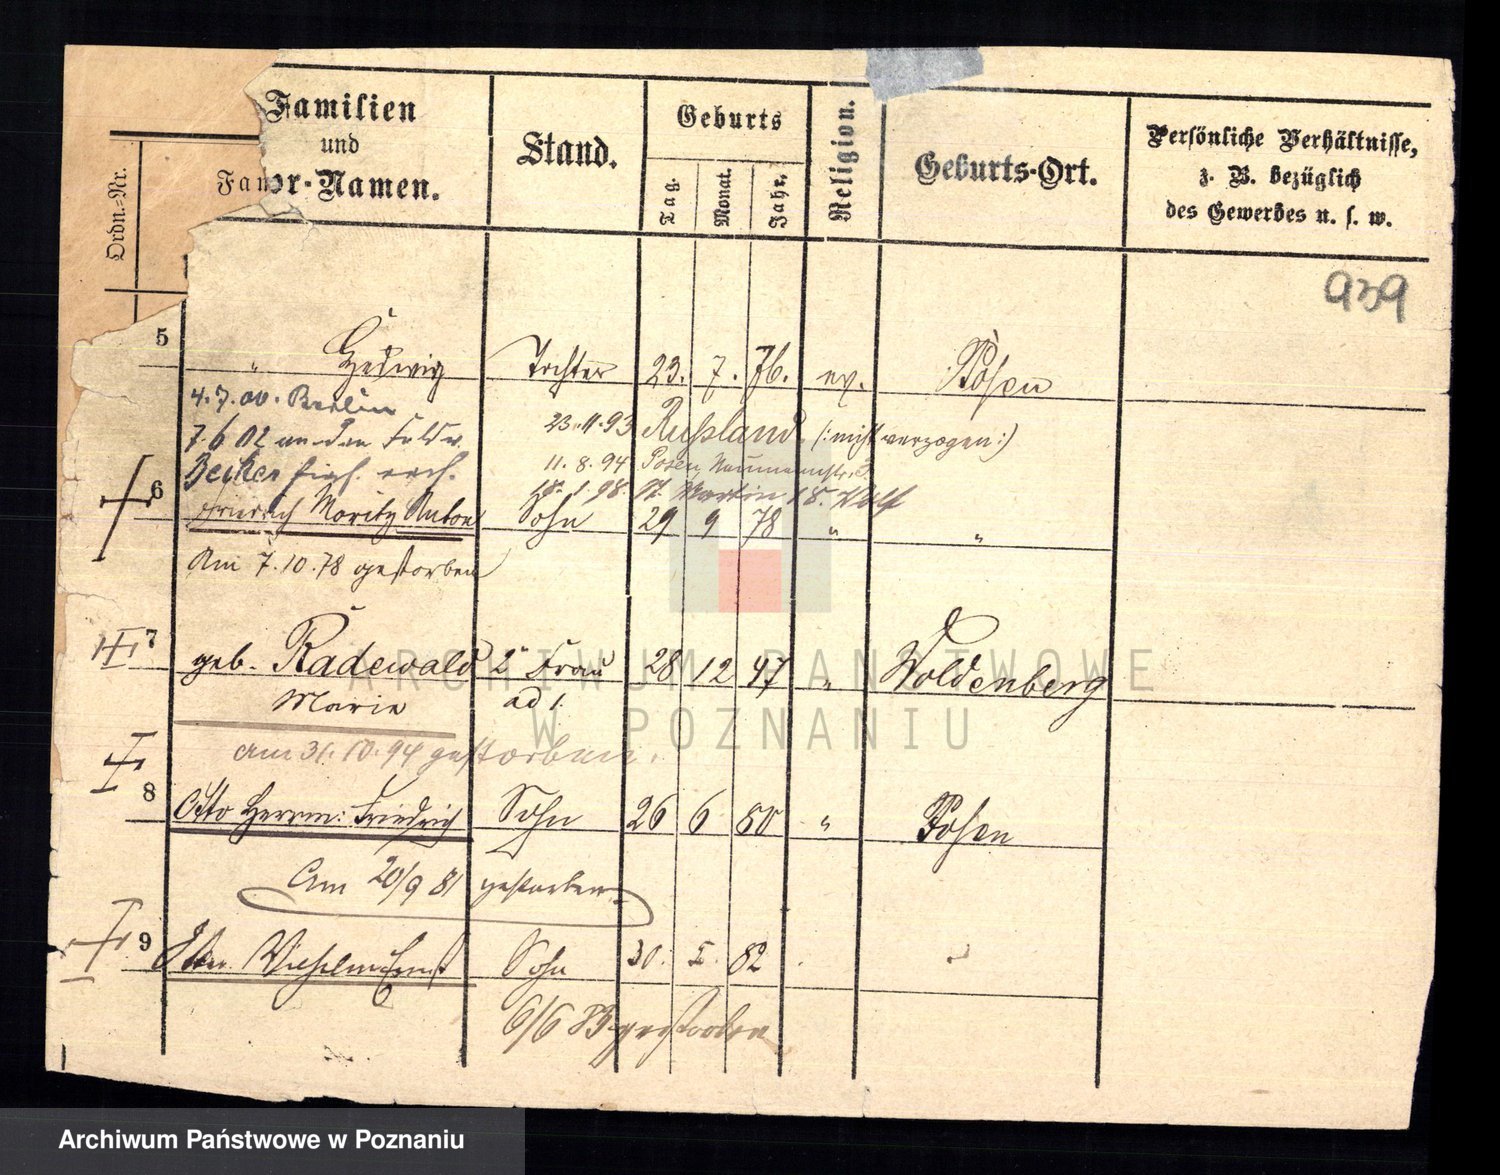 Familien
und
Vor-Namen.
Fam
Stand.
Geburts
Tag.
Monat.
Jahr.
Religion.
Geburts-Ort.
Persönliche Verhältnisse,
z. B. bezüglich
des Gewerbes u. s. w.
Ordn.-Nr.
939
5 " Hedwig Tochter 23. 7. 76. ev. Posen
4.7.00. Berlin
23.11.93 Russland (: mist verzogen :)
7.6 02 an den
11.8.94 Posen
Becker
98. St. Martin 18. Wolf
6 Friedrich Moritz Anton Sohn 29 9 78 " "
Am 7.10.78 gestorben
7 geb. Radewald 2te Frau 28 12 47 " Woldenberg
Marie ad 1.
am 31.10.94 gestorben.
8 Otto Herrm: Friedrich Sohn 26 6 80 " Posen
Am 20/9 81 gestorben
9 Wilhelm Ernst Sohn 30. 5. 82
6/6 83 gestorben
ARCHIWUM PAŃSTWOWE
W POZNANIU
Archiwum Państwowe w Poznaniu